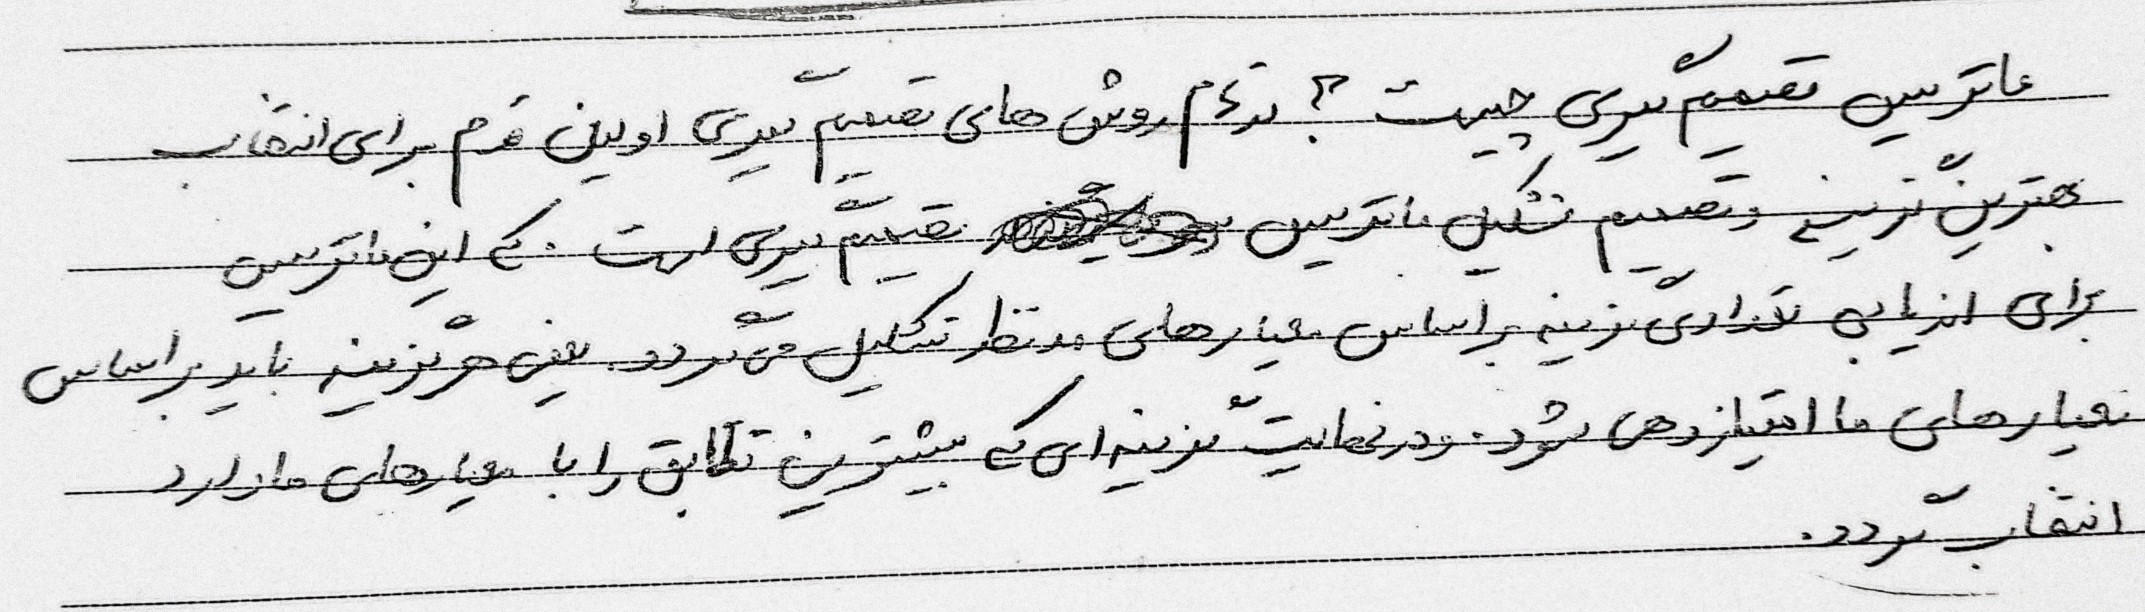 ماتریس تصمیم گیری چیست ؟ در تمام روش های تصمیم گیری اولین قدم برای انتخاب
بهترین گزینه و تصمیم تشکیل ماتریس تصمیم گیری است . که این ماتریس
برای ارزیابی تعدادی گزینه بر اساس معیارهای مدنظر تشکیل می گردد. یعنی هر گزینه باید بر اساس
معیارهای ما امتیازدهی شود. و در نهایت گزینه ای که بیشترین تطابق را با معیارهای ما دارد
انتخاب گردد.